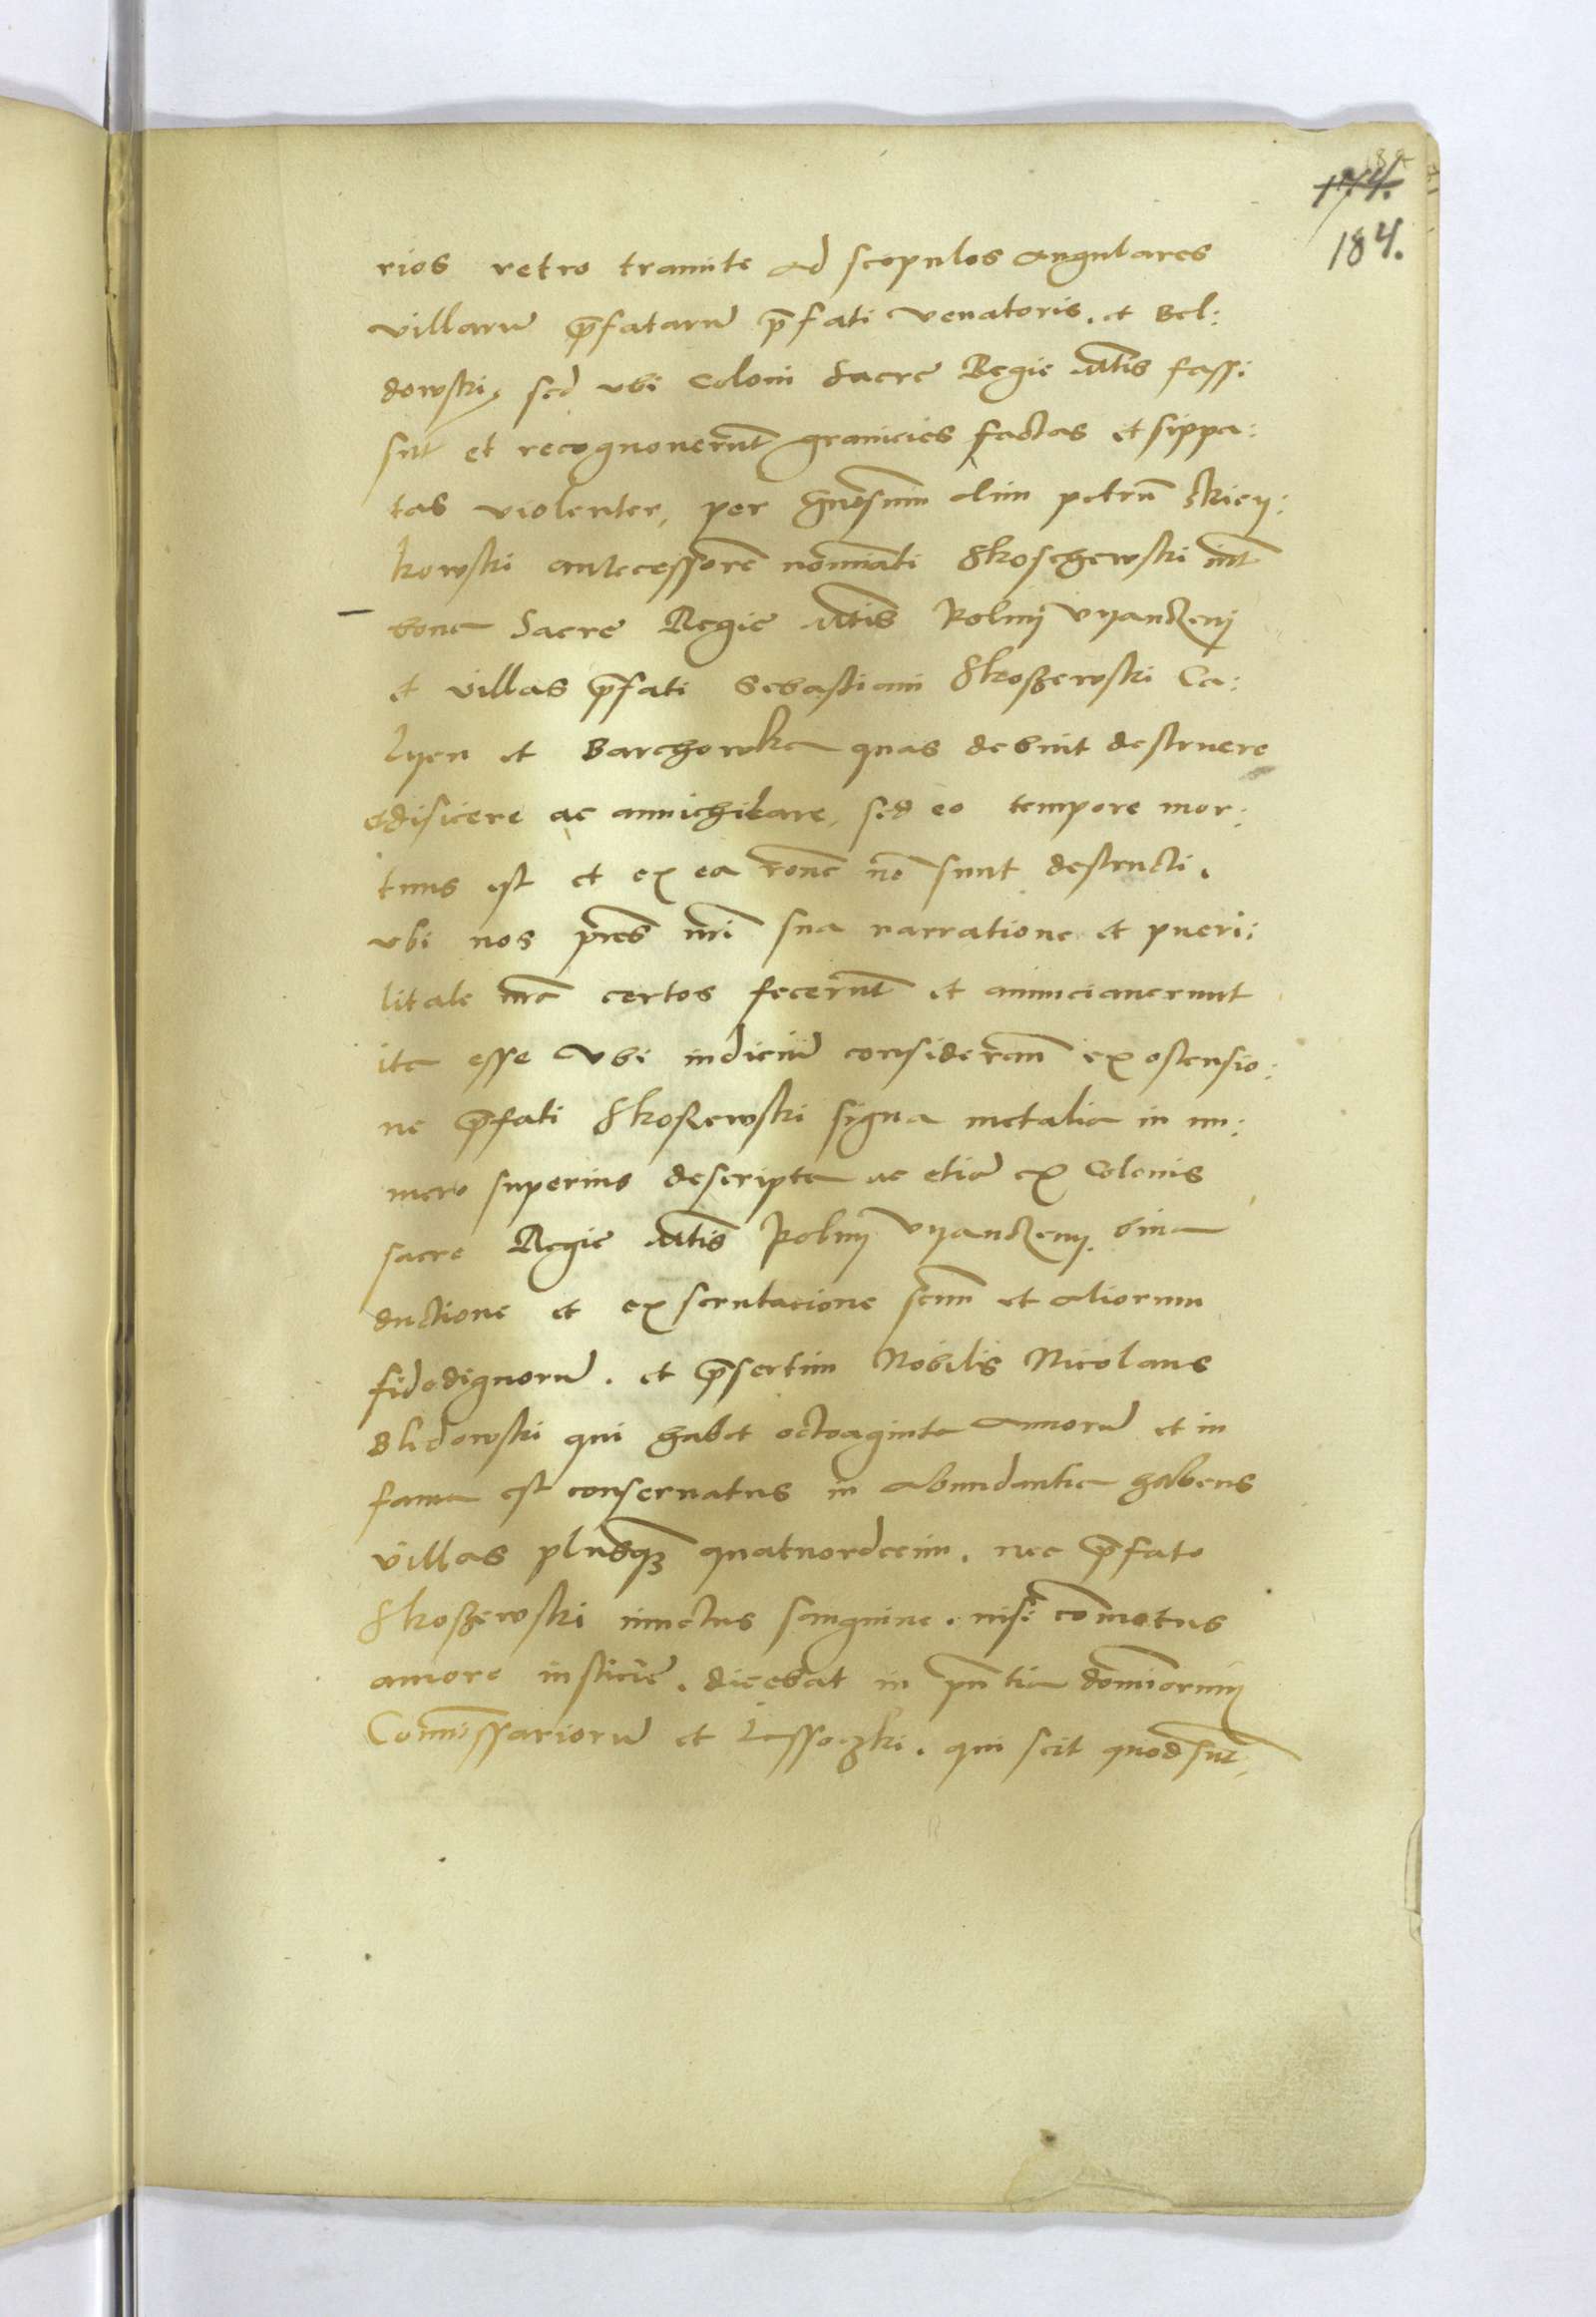 174.
184.
rios retro tramite ad scopulos angulares
villarū p̄fatarū p̄fati venatoris. et Bel:
dowski, sed vbi Coloni Sacre Regie Mtis fassi
sūt et recognouerūt granicies factas et sippa:
tas violenter, per gn̄osum olim petrū
kowski antecessorē nominati Skoschewski int̄
bona Sacre Regie Mtis Rolnij Vyanczenij
et villas p̄fati Sebastiani Skoszewski Ca:
lyen et Barchowka quas debuit destruere
edisicere ac annichilare, sed eo tempore mor:
tuus est et ex ea rōne nō sunt destructi.
vbi nos p̄res nr̄i sua narratione et pueri:
litate nr̄a certos fecerūt et annunciauerunt
ita esse Vbi indiciū consideran̄ ex ostensio:
ne p̄fati Skoszewski signa metalia in nu:
mero superius descripta ac etiā ex Colonis
sacre Regie Mtis Rolnij Vyanczenij. bina
ductione et ex scrutacione scūm et aliorum
fidedignorū. et p̄sertim Nobilis Nicolaus
Blidowski qui habet octoaginta annorū et in
fama est conseruatus in abundantia habens
villas plusqȝ quatuordecim. nec p̄fato
Skoszewski iunctus sanguine. nisi cōmotus
amore insticie. dicebat in pn̄tia dominorum
Comissariorū et Lessoczki. qui scit quod sūt,